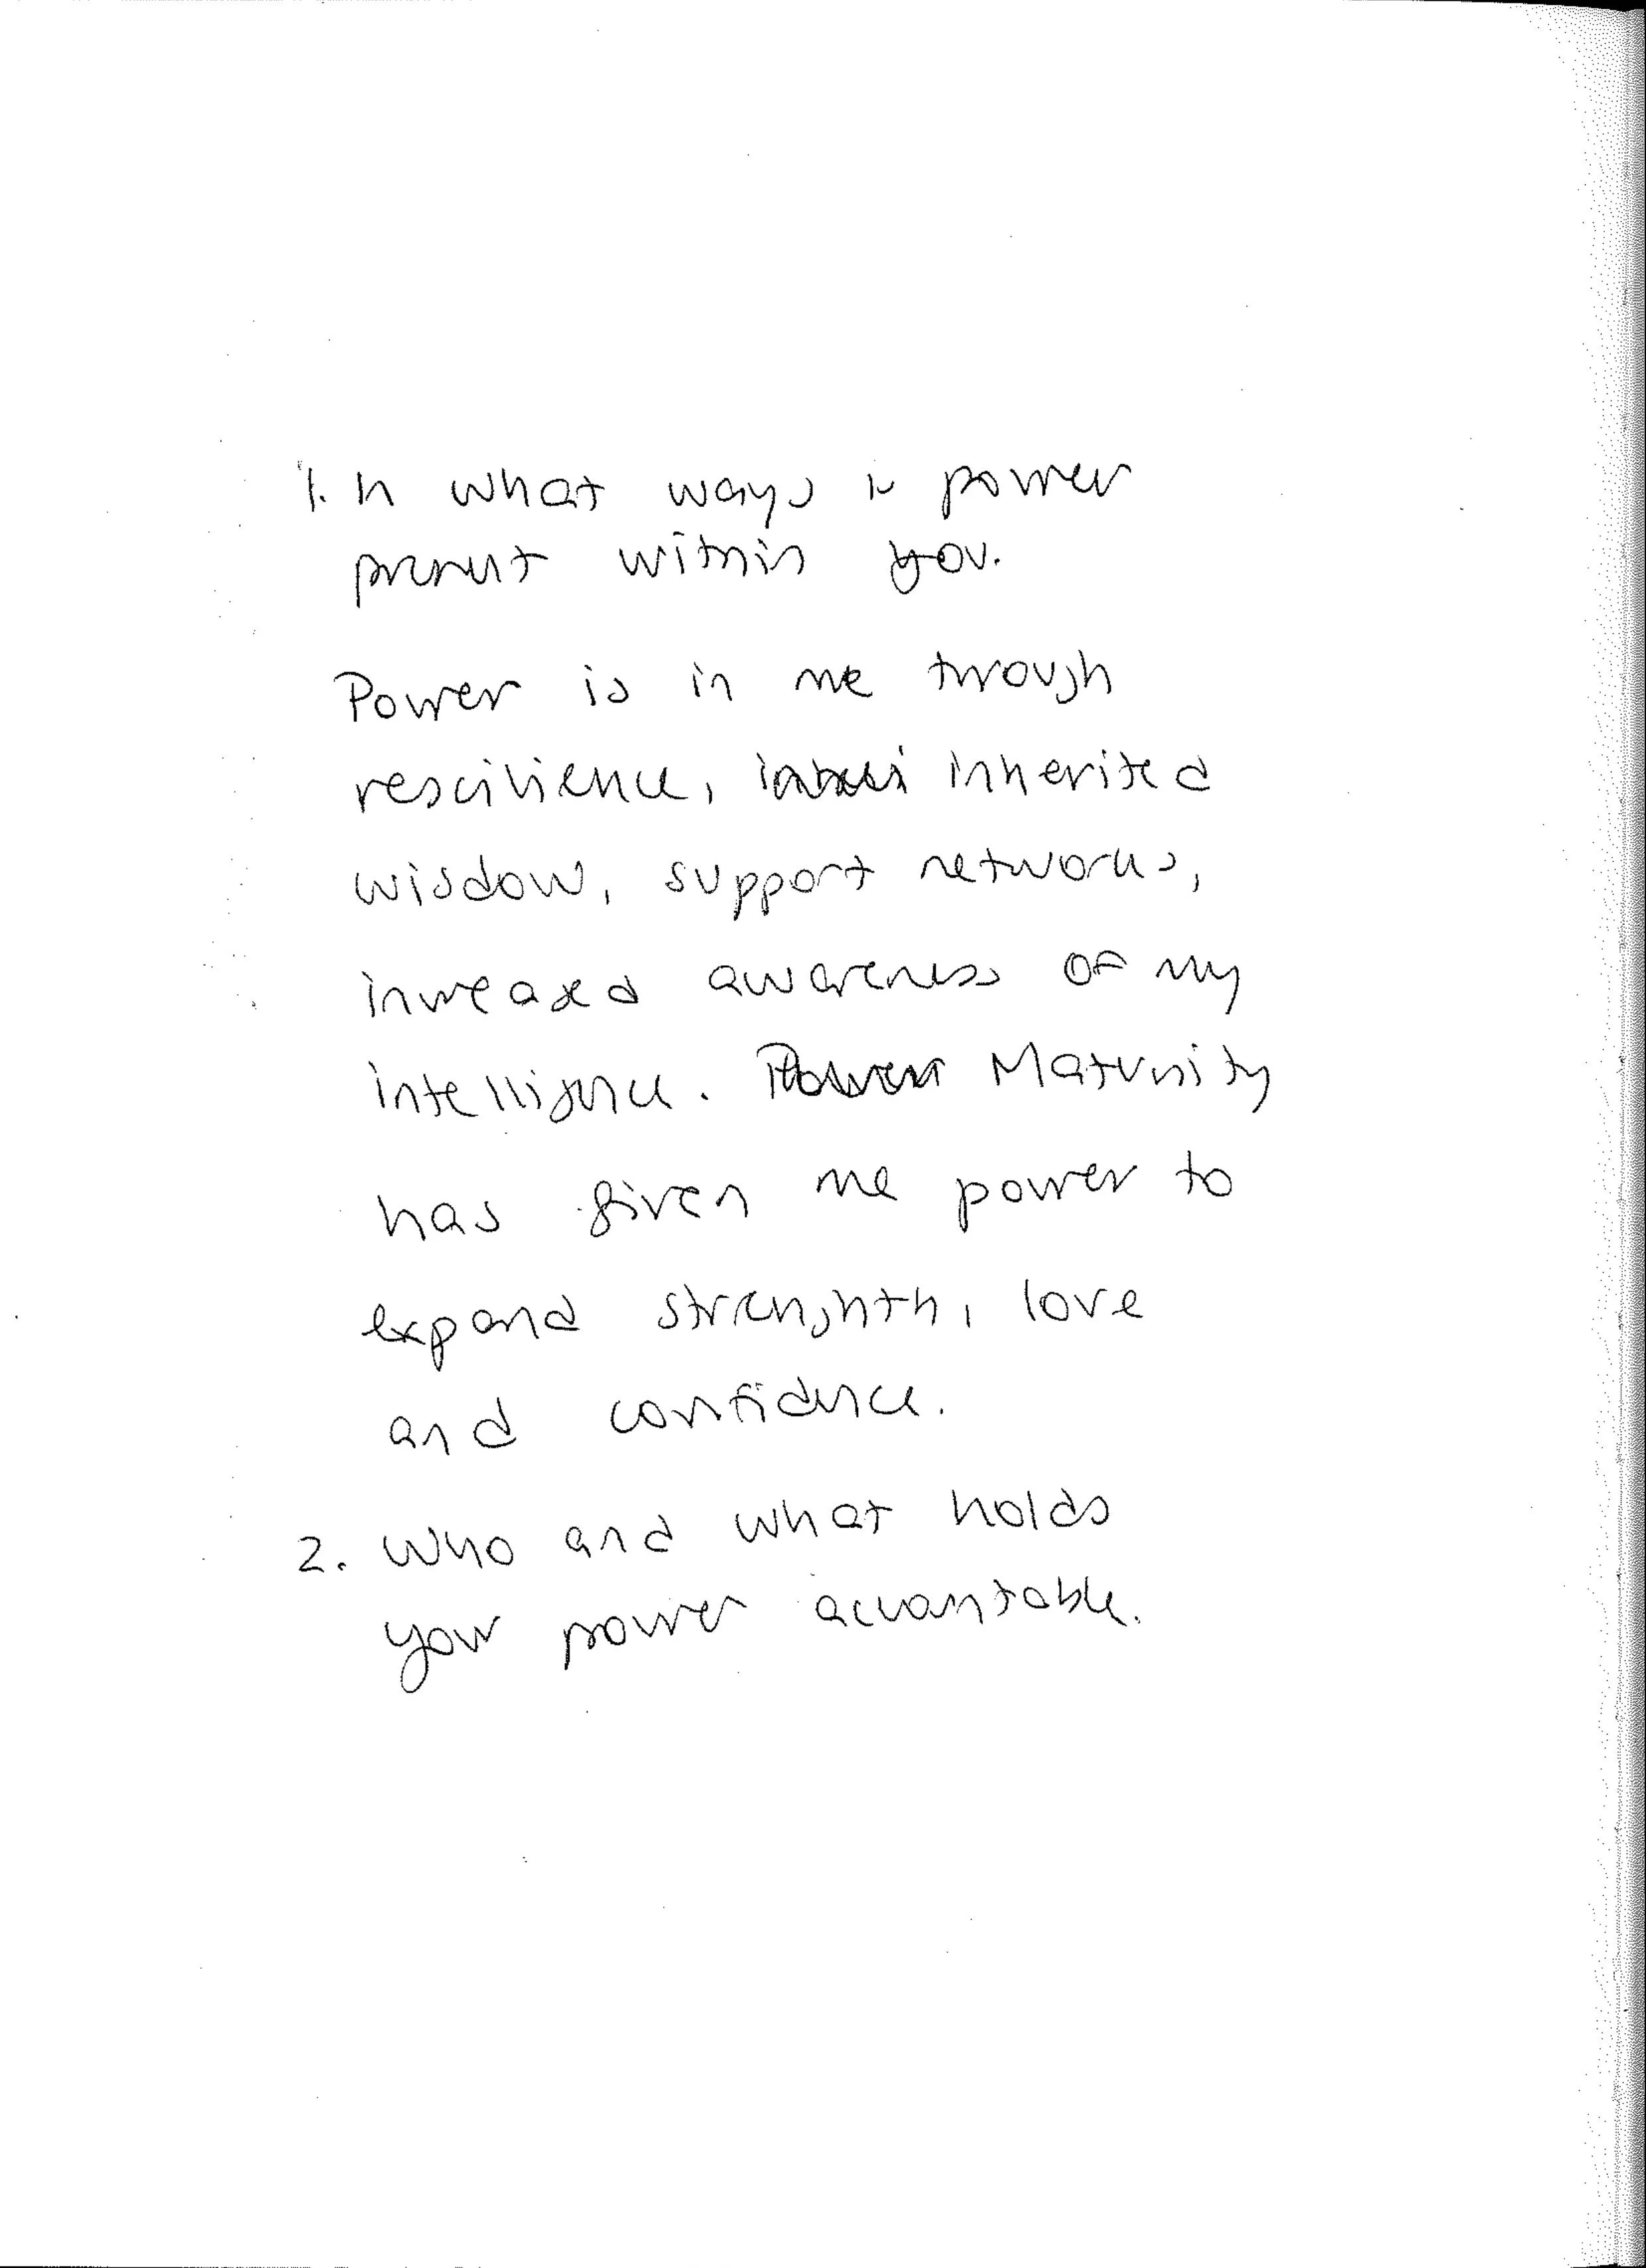 1. In what ways is power
present within you.
Power is in me through
rescilience, inherited
wisdow, support networks,
increased awareness of my
intelligence. Power Maturity
has given me power to
expand strenghth, love
and confidence.
2. Who and what holds
your power accountable.